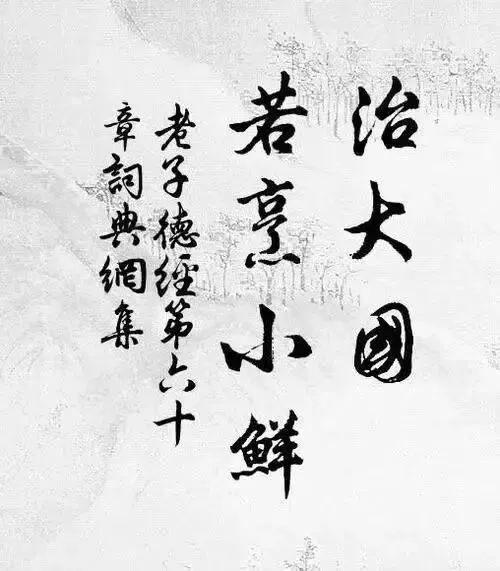 治大國
若烹小鮮
老子德經第六十
章詞典網集